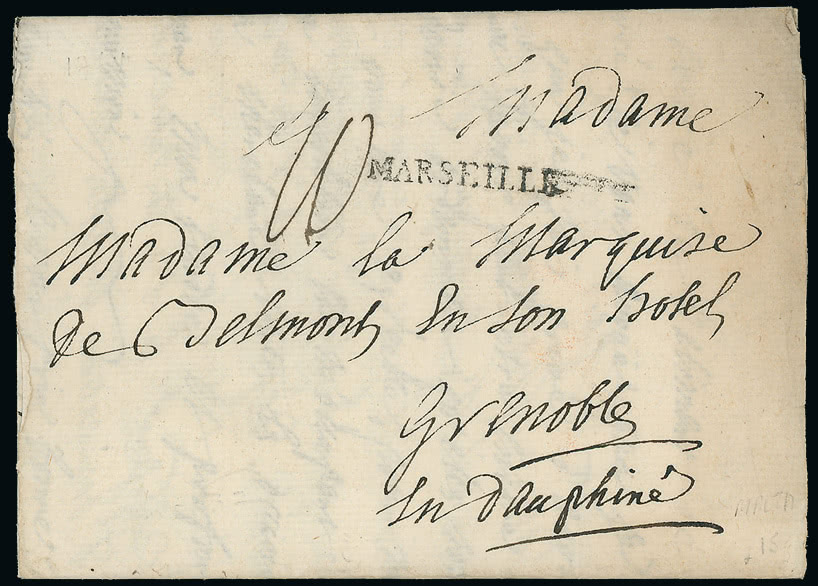 Madame
MARSEILLE
Madame la Marquise
de Belmont En son hotel
Grenoble
En dauphiné
MALTA
15